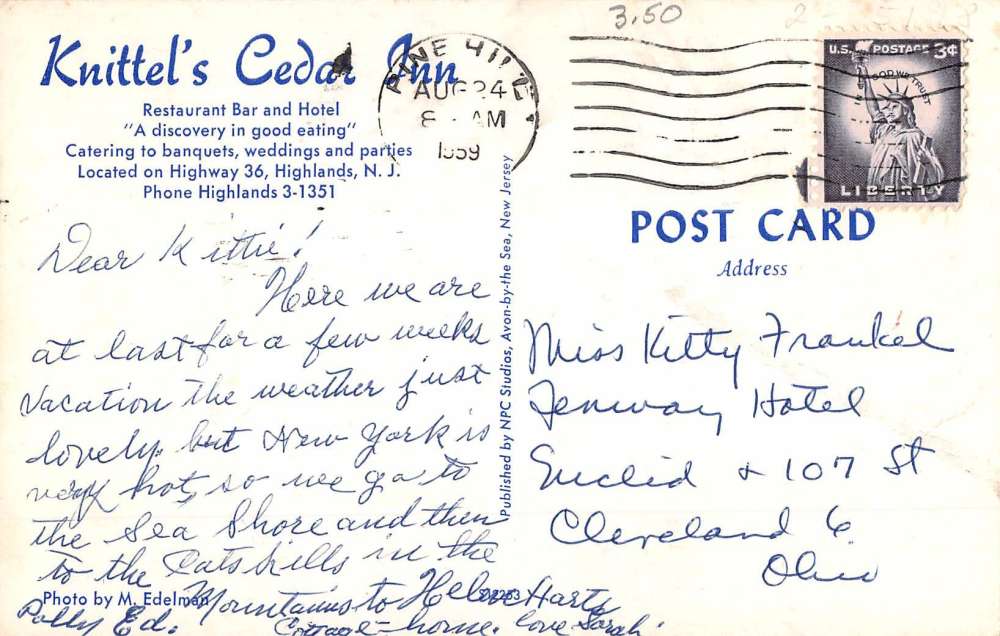 3.50
Knittel's Cedar Inn
Restaurant Bar and Hotel
"A discovery in good eating"
Catering to banquets, weddings and parties
Located on Highway 36, Highlands, N. J.
Phone Highlands 3-1351
PINE HILL
AUG 24
8 - AM
1959
U.S. POSTAGE 3¢
IN GOD WE TRUST
LIBERTY
Dear Kittie!
Here we are
at last for a few weeks
vacation the weather just
lovely. but New York is
very hot, so we go to
the Sea Shore and then
to the Catskills in the
Mountains to Helen Harts
Cottage - home. love Sarah.
Polly Ed.
Photo by M. Edelman
Published by NPC Studios, Avon-by-the Sea, New Jersey
POST CARD
Address
Miss Kitty Frankel
Fenway Hotel
Euclid & 107 St
Cleveland 6.
Ohio